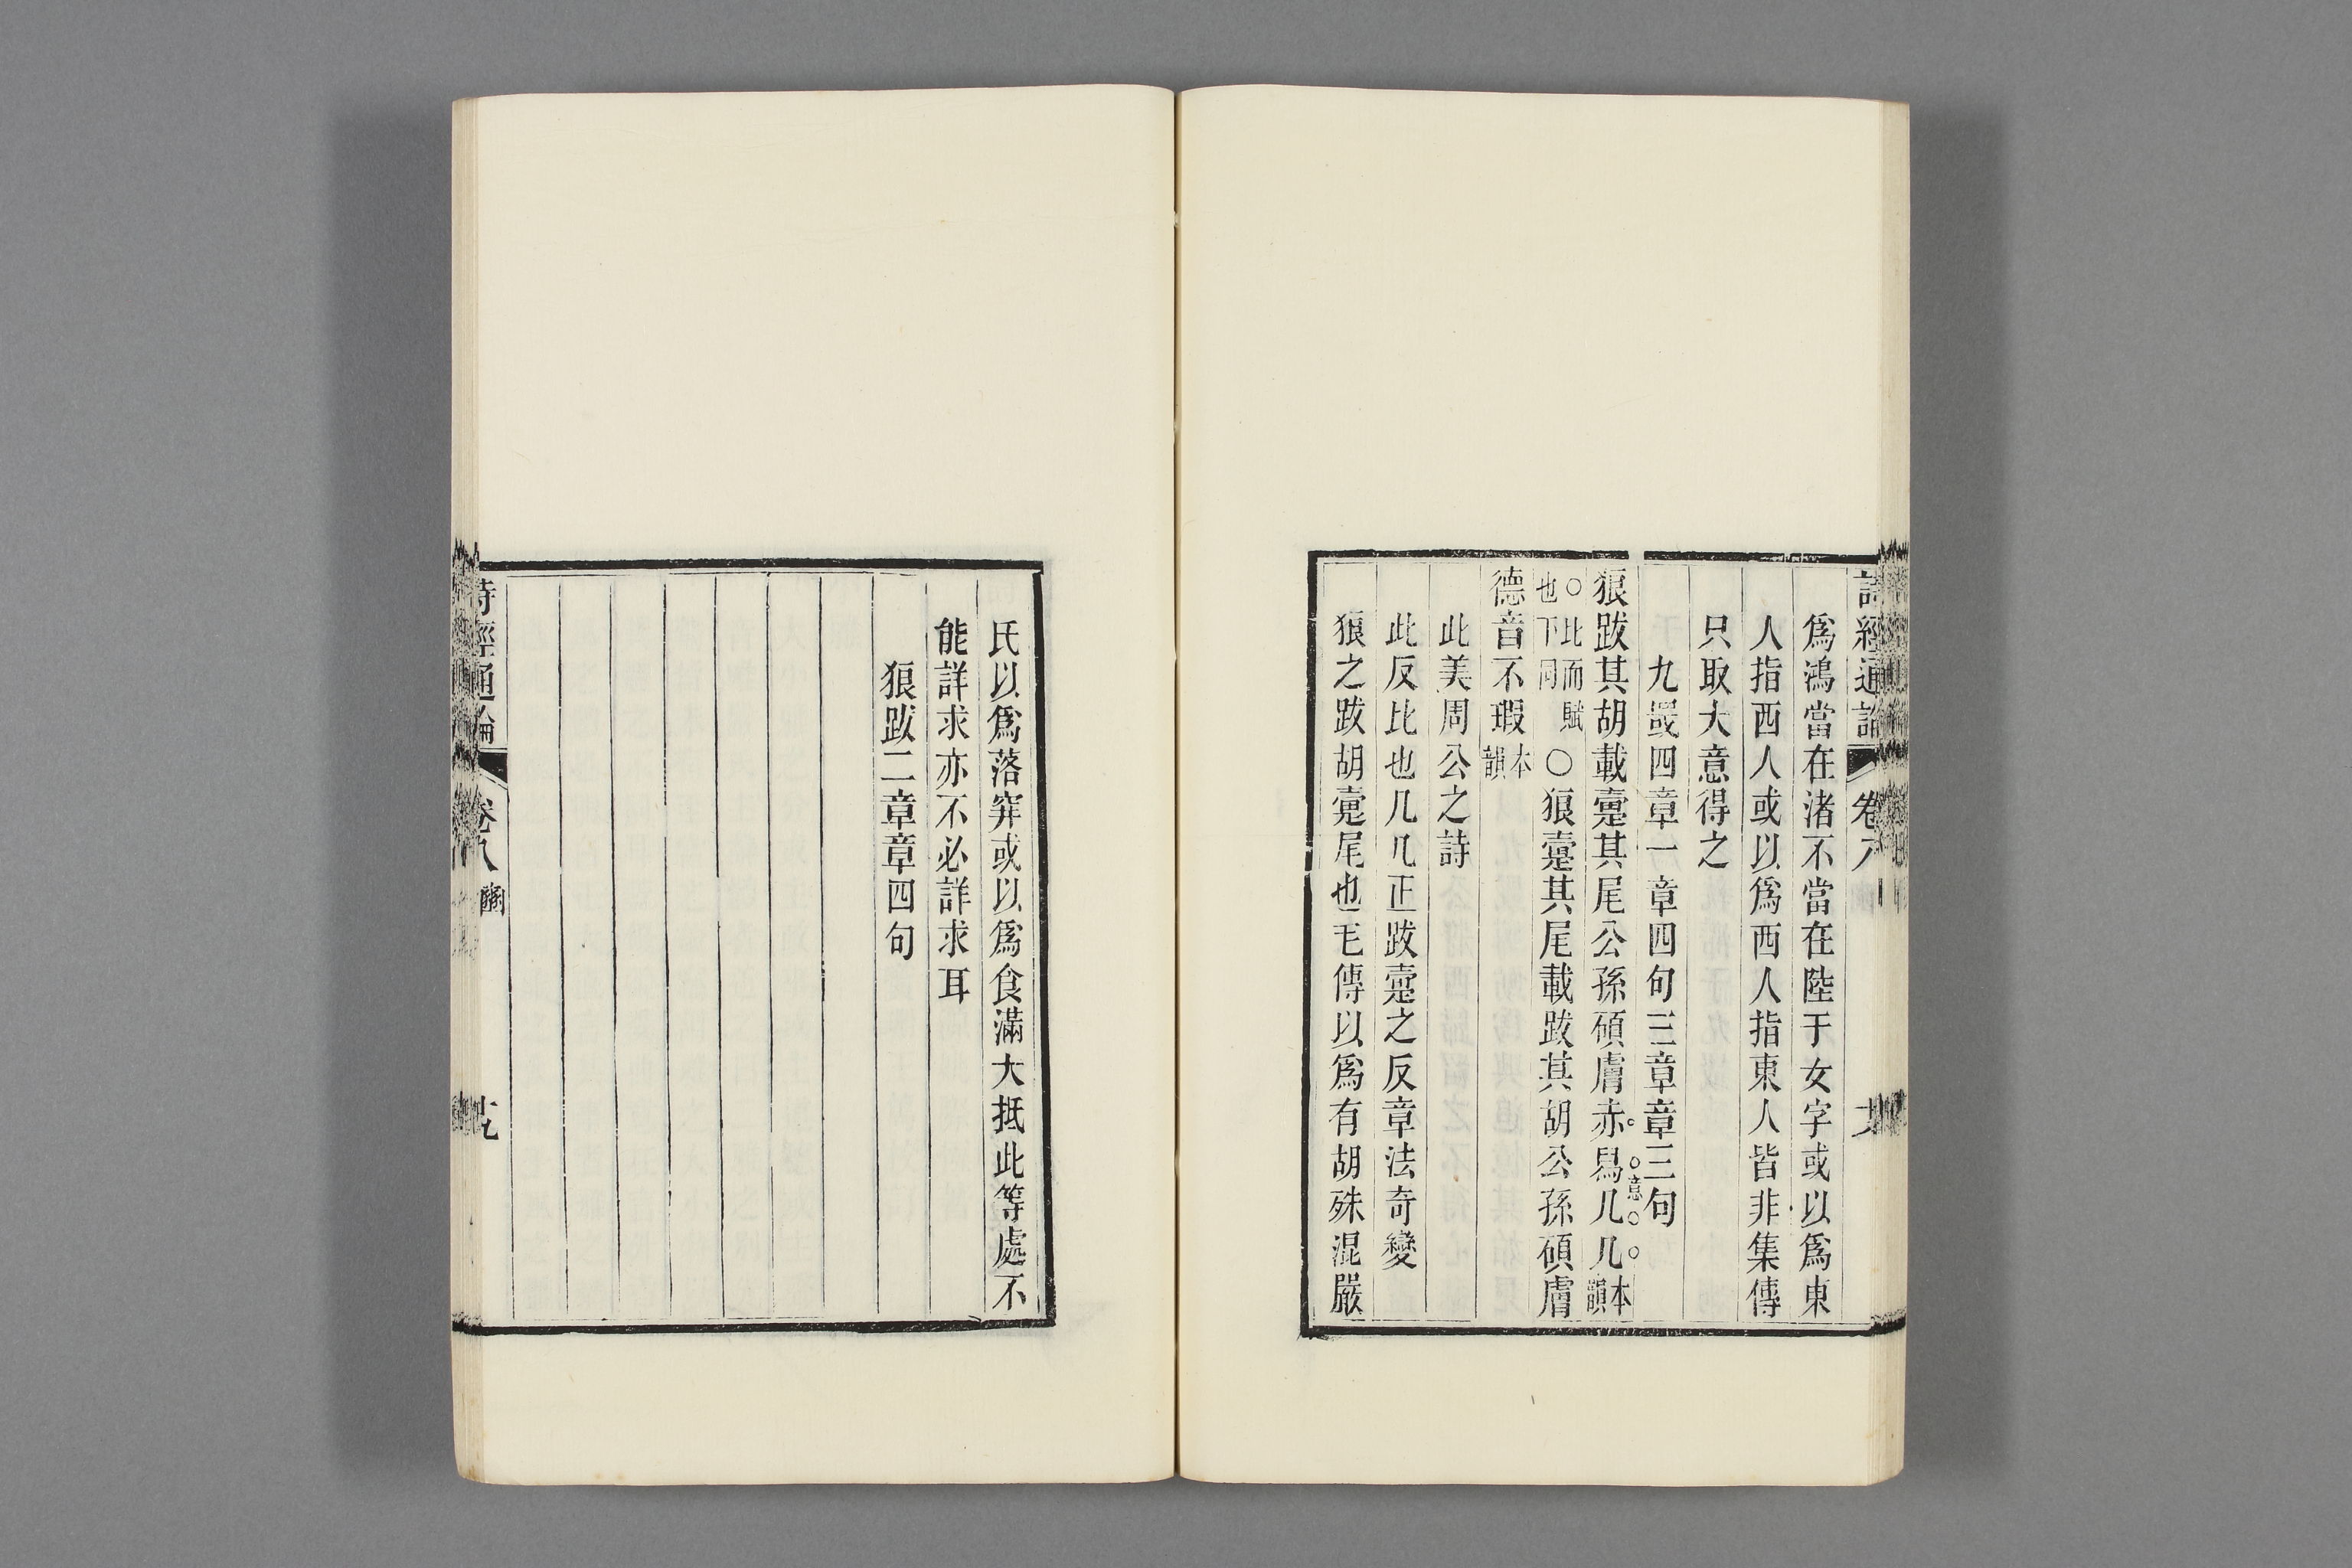 詩經通論 卷八
爲鴻當在渚不當在陸于女字或以爲東
人指西人或以爲西人指東人皆非集傳
只取大意得之
九罭四章一章四句三章章三句
狼跋其胡載疐其尾公孫碩膚赤舄几几本韻
意
○此而賦也下同○狼疐其尾載跋其胡公孫碩膚
德音不瑕本韻
此美周公之詩
此反比也几几正跋疐之反章法奇變
狼之跋胡疐尾也毛傳以爲有胡殊混嚴
氏以爲落穽或以爲食滿大抵此等處不
能詳求亦不必詳求耳
狼跋二章章四句
詩經通論 卷八 豳